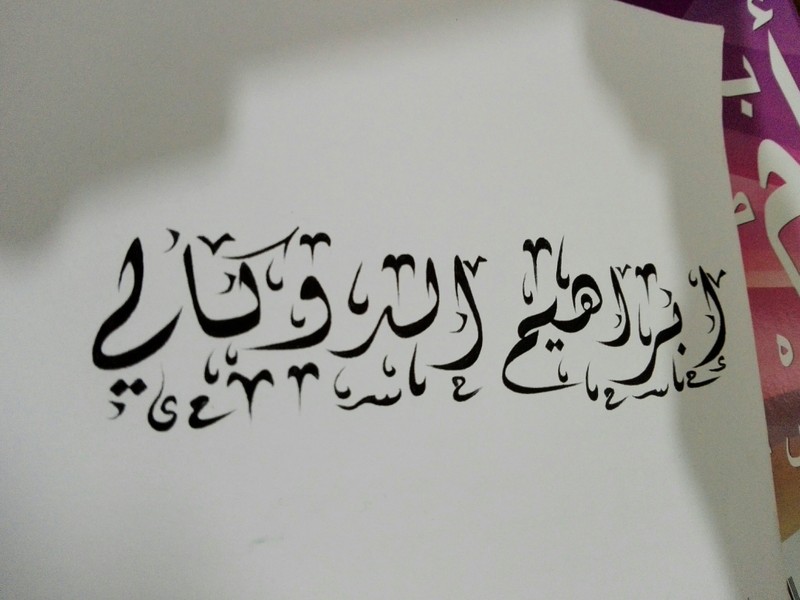 إبراهيم الدوكالي